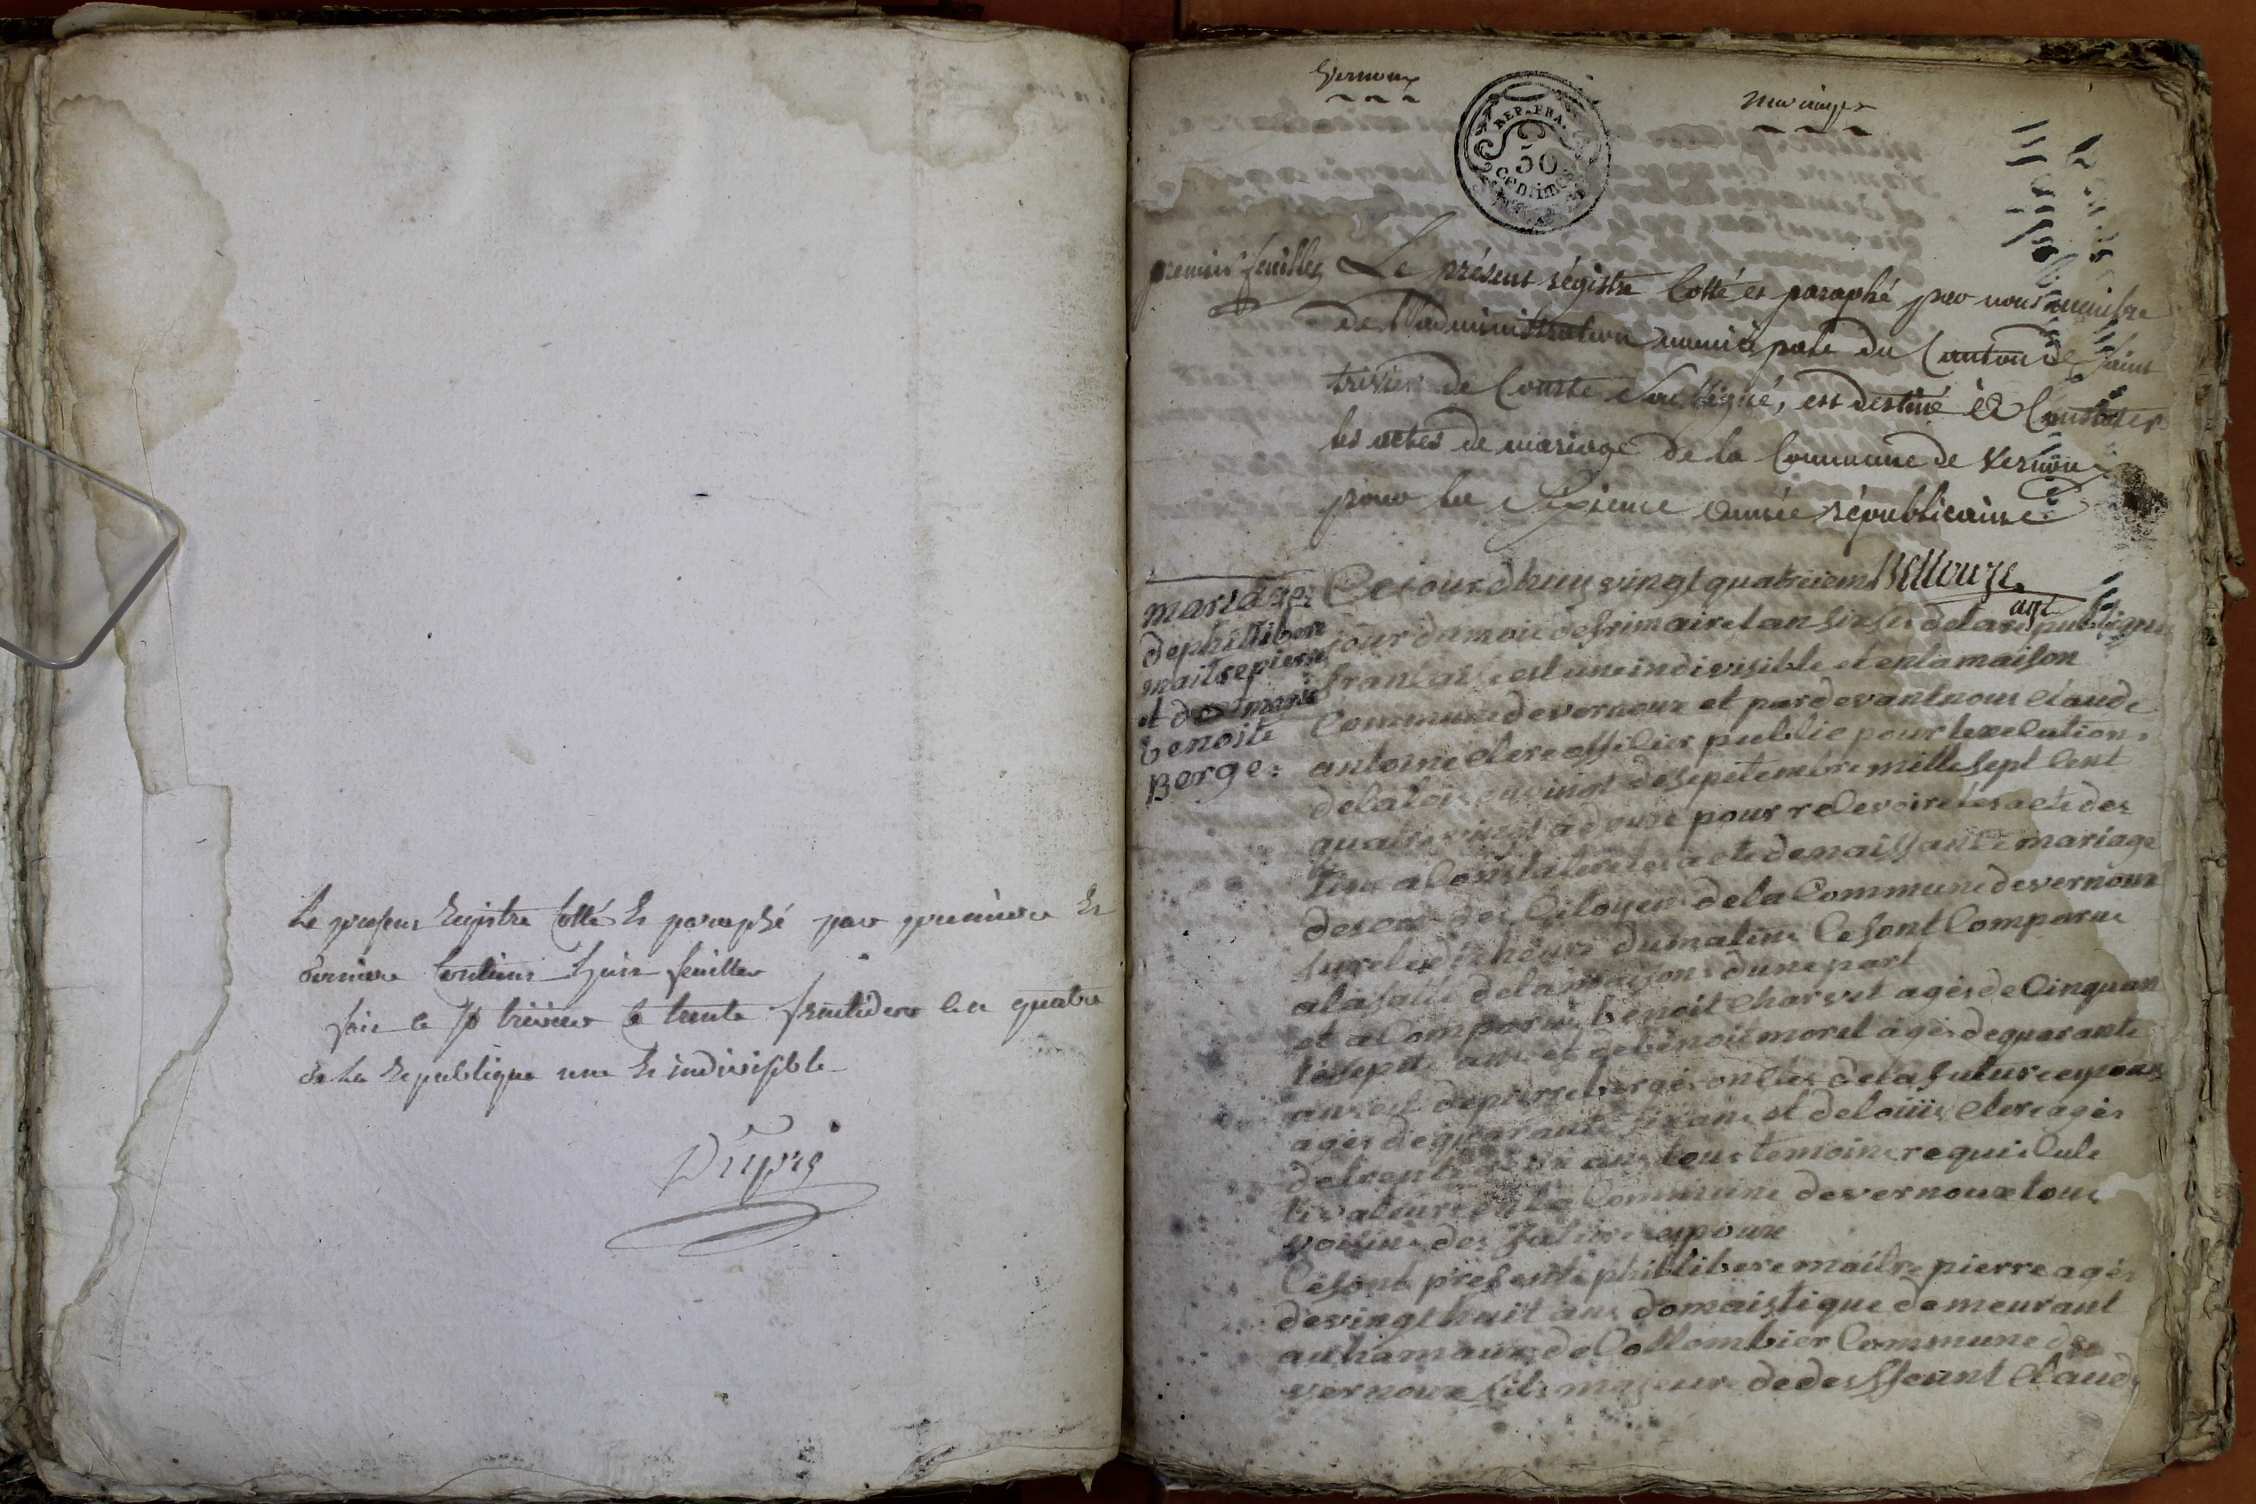 Le present registre cotté et paraphé par premiere et
derniere contient huit feuilles
fait a St trivier le trente fructidor l'an quatre
de la Republique une et indivisible
Dupré
Vernoux
mariages
REP. FRA.
50
centimes
premier feuillet Le présent régistre Cotté et paraphé par nous membre
de l'administration municipale du Canton de Saint
trivier de Courte Soussigné, est destiné à Constater
les actes de mariage de la Commune de Vernoux
pour la Sixieme année républicaine
agt
mariage
de phillibere
maitrepierre
et de marie
benoite
Berge:
Ce jour dhuy vingt quatreiem
jour du mois de frimaire l an sixse de la republique
francaise est une indivisible et en la maison
Commune de vernoux et par devant nous Claude
antoine Clere officier public pour lexecution
de la loix du vingt de sepetembre mille sept Cent
quatre vingt a douze pour recevoire les acte des
tine a Constatere les acte de naissante mariage
deces des Citoyen de la Commune de vernoux
sur les dix heure du matine Ce sont Comparue
a la salle de la maison dune part
et a Comparue benoit Charvet agés de Cinquan
te sepet ans et de benoit morel agés de quarante
ans et de pierre berge oncles de la future epoux
agés de quarante six ans et de loüis Clere agés
de trente ans tous temoine requis Cule
tivateurs en la Commune de vernoux tous
voisine des future epoux
Ce sont presenté phillibere maitre pierre agés
de vingt huit ans domaistique demeurant
au hamaux de Collombier Commune de
vernoux fils majeure de deffeunt Claude